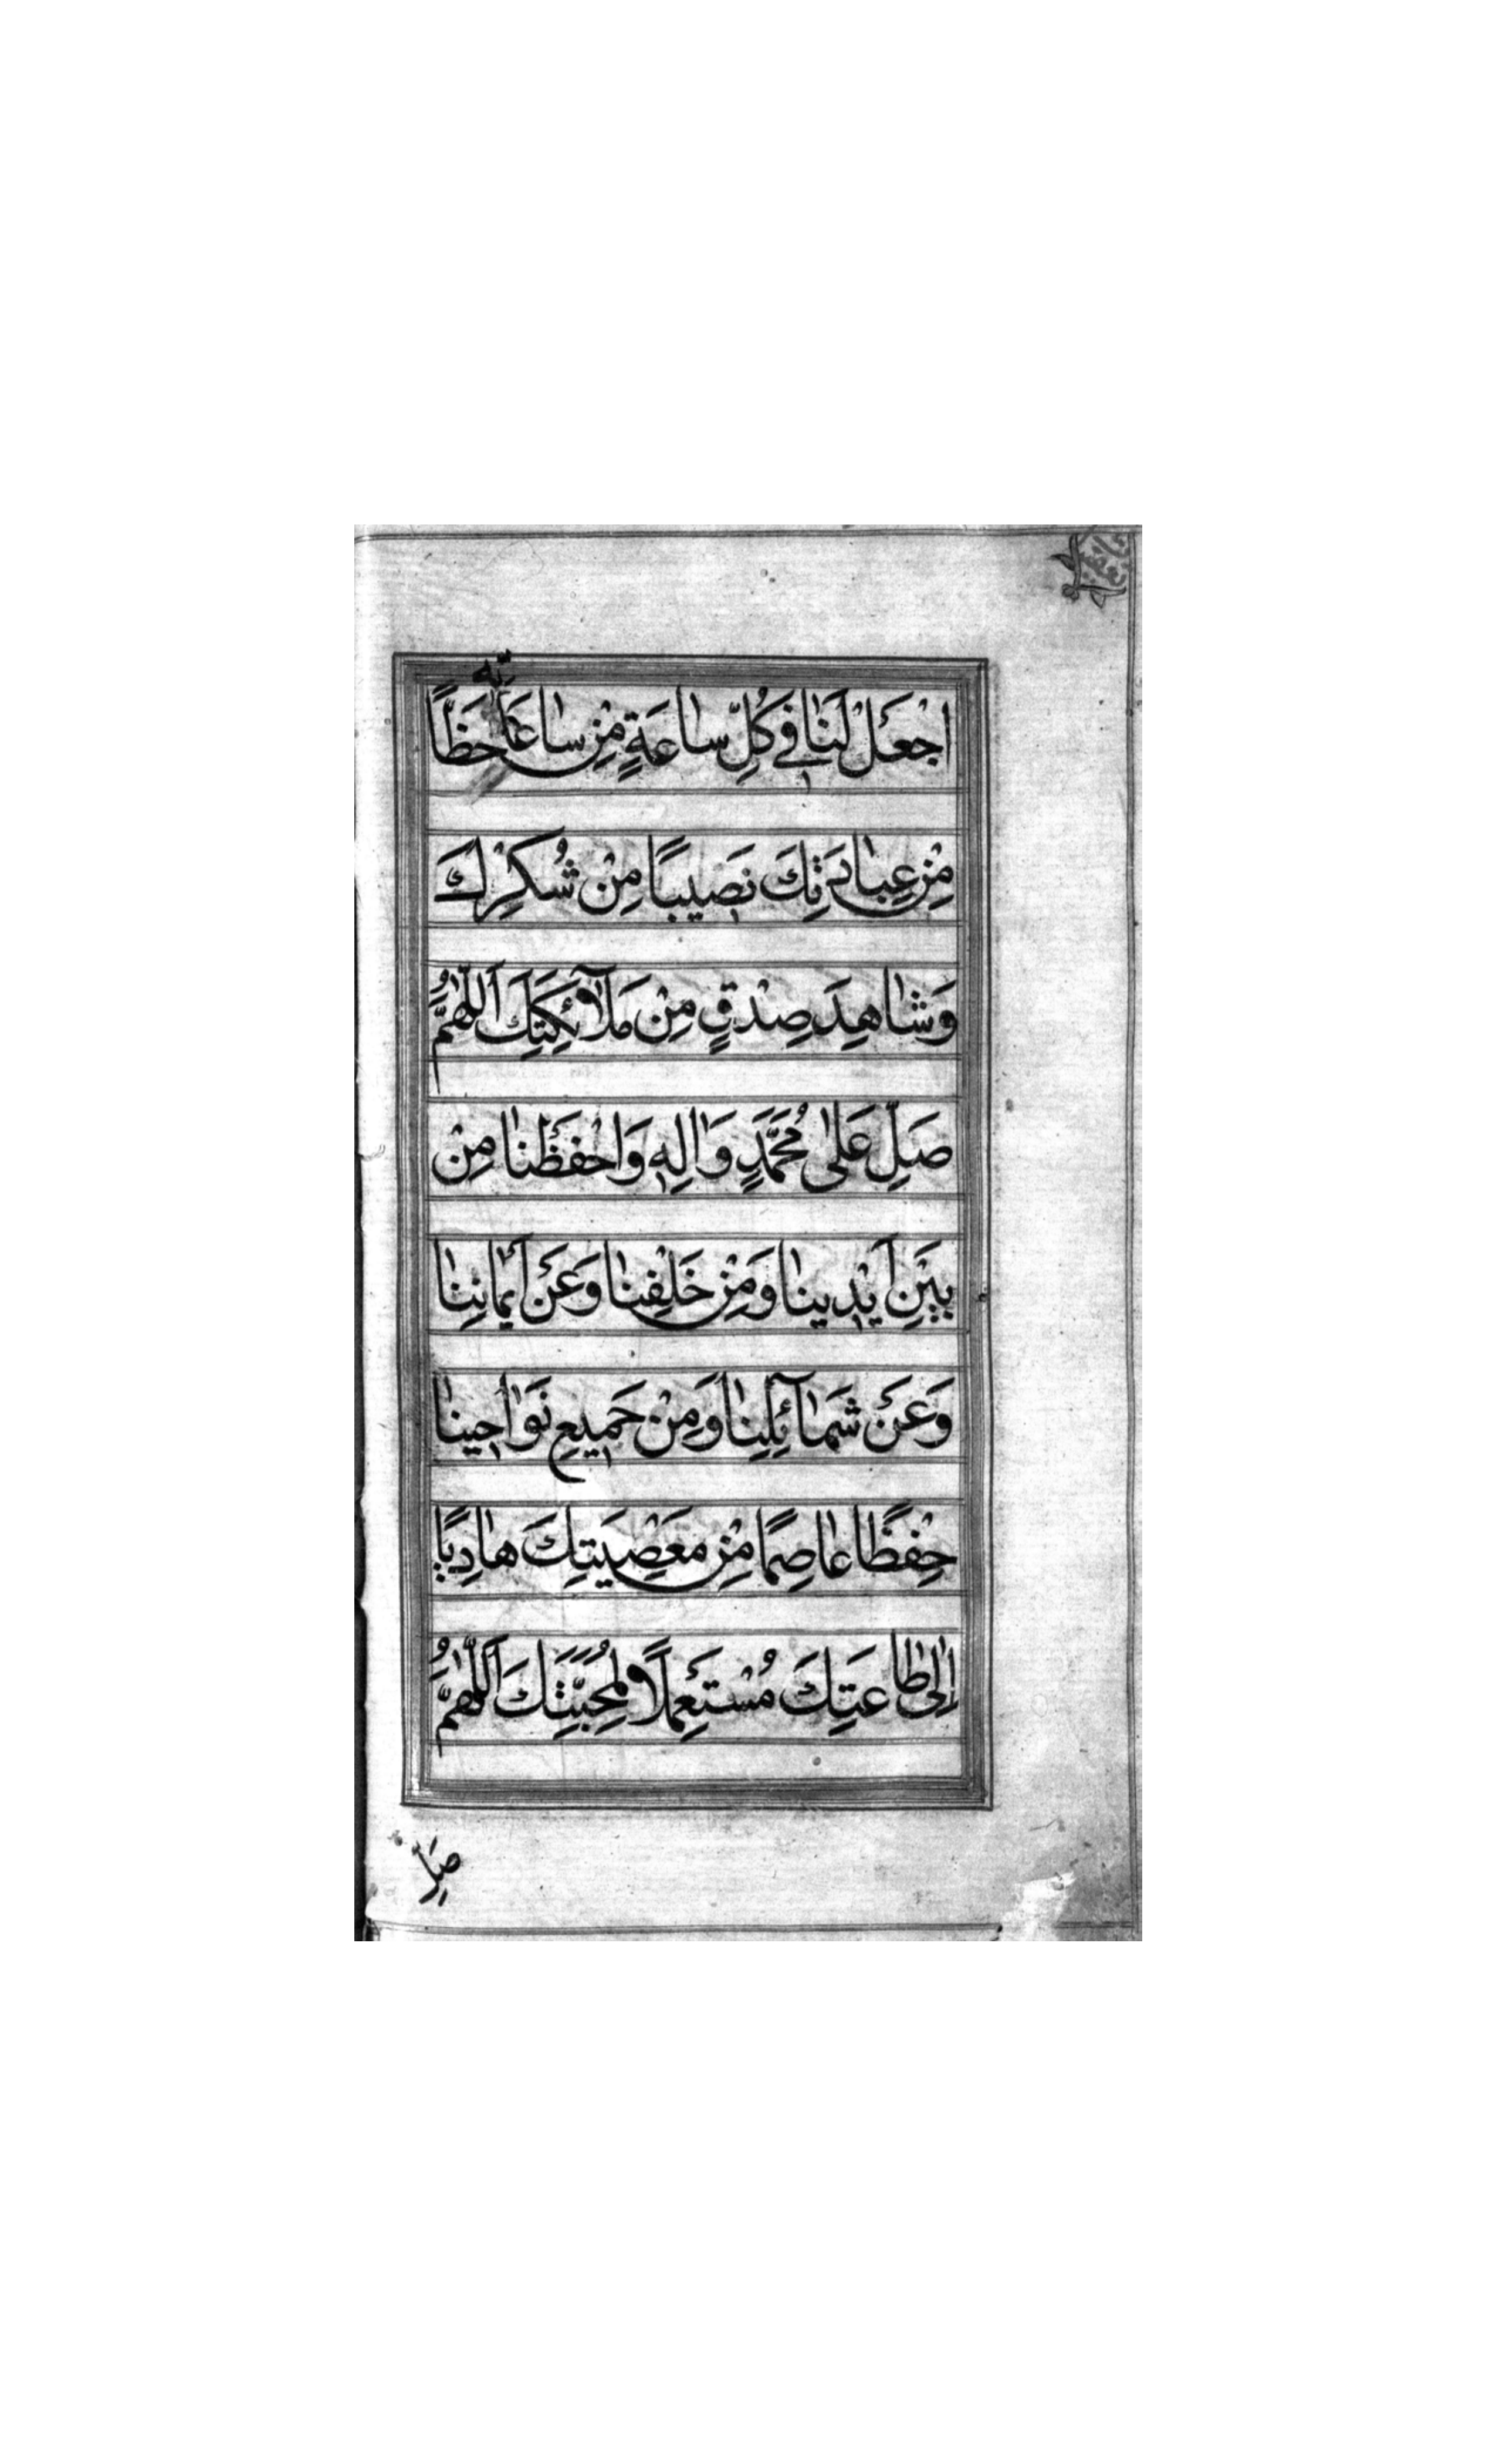 اجْعَلْ لَنَا فِي كُلِّ سَاعَةٍ مِنْ سَاعَاتِهِ حَظًّا
مِنْ عِبَادَتِكَ نَصِيبًا مِنْ شُكْرِكَ
وَشَاهِدَ صِدْقٍ مِنْ مَلَآئِكَتِكَ اَللّٰهُمَّ
صَلِّ عَلٰى مُحَمَّدٍ وَاٰلِهِ وَاحْفَظْنَا مِنْ
بَيْنِ اَيْدِينَا وَمِنْ خَلْفِنَا وَعَنْ اَيْمَانِنَا
وَعَنْ شَمَآئِلِنَا وَمِنْ جَمِيعِ نَوَاحِينَا
حِفْظًا عَاصِمًا مِنْ مَعْصِيَتِكَ هَادِيًا
اِلٰى طَاعَتِكَ مُسْتَعْمِلًا لِمَحَبَّتِكَ اَللّٰهُمَّ
صَلِّ